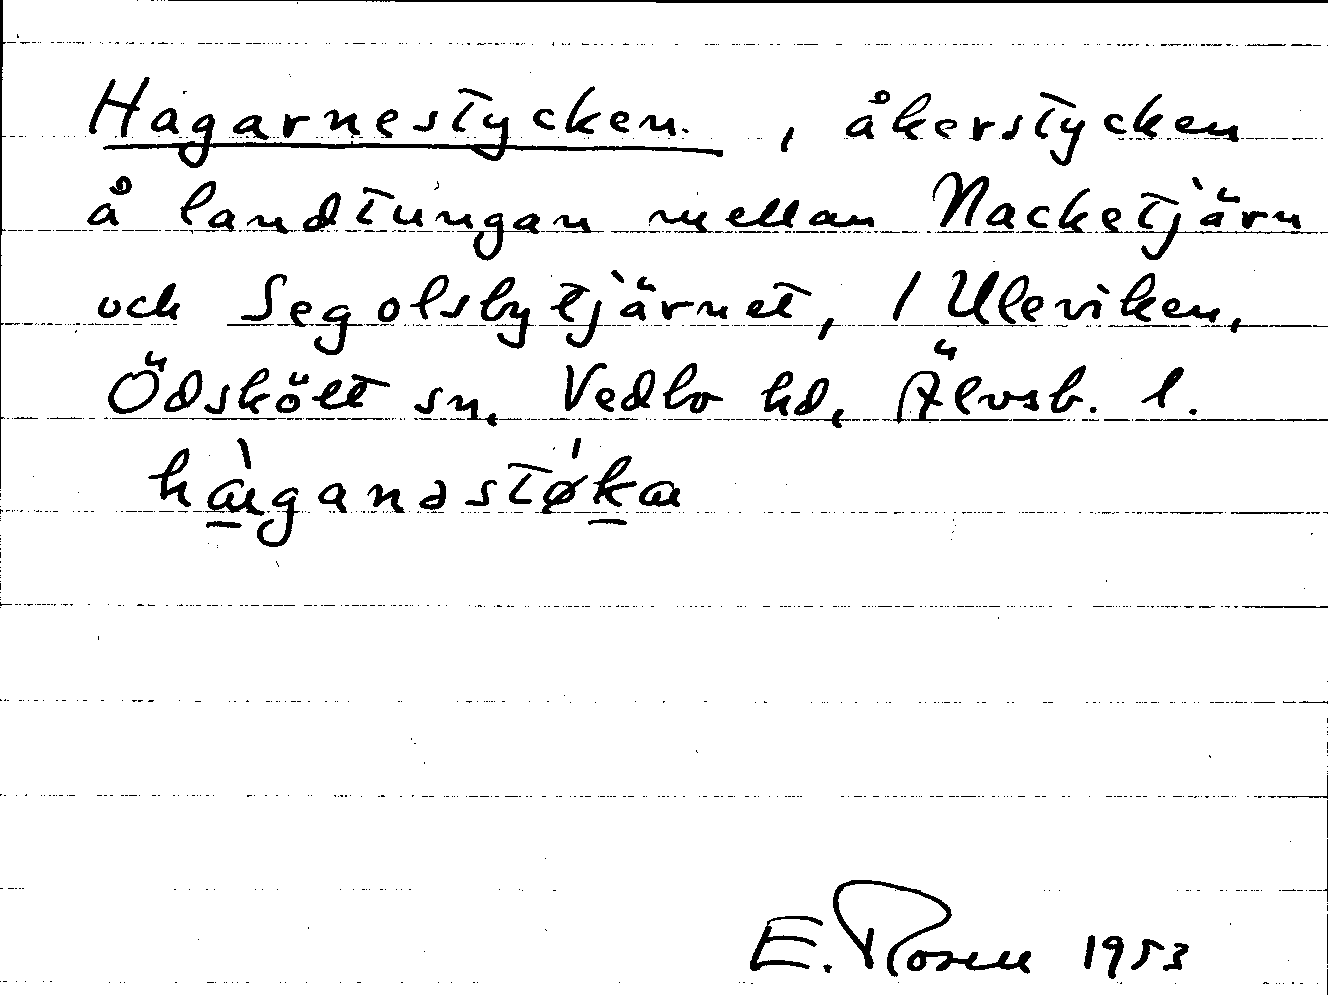 Hagarnestycken. , åkerstycken
å landtungan mellan Nacketjärn
och Segolsbytjärnet, / Uleviken,
Ödskölt sn, Vedbo hd, Älvsb. l.
hàganəstø´ka
E. Rosen 1953